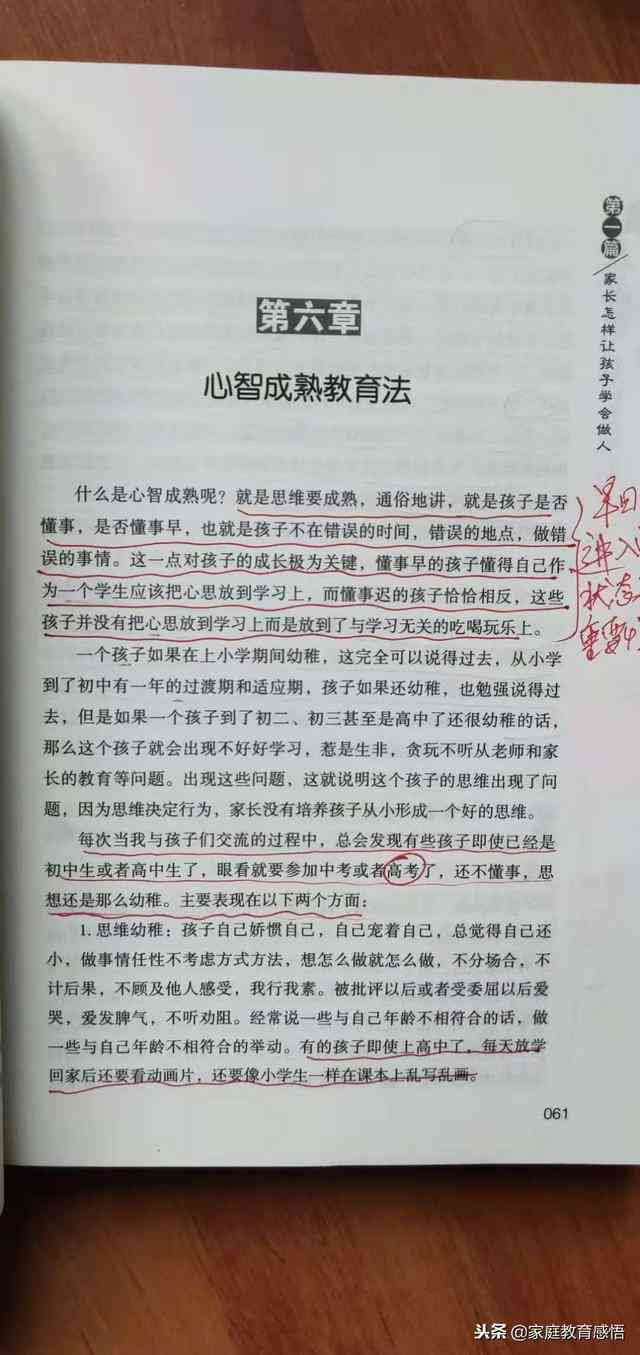 第一篇
家长怎样让孩子学会做人
第六章
心智成熟教育法
什么是心智成熟呢？就是思维要成熟，通俗地讲，就是孩子是否
懂事，是否懂事早，也就是孩子不在错误的时间，错误的地点，做错
误的事情。这一点对孩子的成长极为关键，懂事早的孩子懂得自己作
为一个学生应该把心思放到学习上，而懂事迟的孩子恰恰相反，这些
孩子并没有把心思放到学习上而是放到了与学习无关的吃喝玩乐上。
一个孩子如果在上小学期间幼稚，这完全可以说得过去，从小学
到了初中有一年的过渡期和适应期，孩子如果还幼稚，也勉强说得过
去，但是如果一个孩子到了初二、初三甚至是高中了还很幼稚的话，
那么这个孩子就会出现不好好学习，惹是生非，贪玩不听从老师和家
长的教育等问题。出现这些问题，这就说明这个孩子的思维出现了问
题，因为思维决定行为，家长没有培养孩子从小形成一个好的思维。
每次当我与孩子们交流的过程中，总会发现有些孩子即使已经是
初中生或者高中生了，眼看就要参加中考或者高考了，还不懂事，思
想还是那么幼稚。主要表现在以下两个方面：
1. 思维幼稚：孩子自己娇惯自己，自己宠着自己，总觉得自己还
小，做事情任性不考虑方式方法，想怎么做就怎么做，不分场合，不
计后果，不顾及他人感受，我行我素。被批评以后或者受委屈以后爱
哭，爱发脾气，不听劝阻。经常说一些与自己年龄不相符合的话，做
一些与自己年龄不相符合的举动。有的孩子即使上高中了，每天放学
回家后还要看动画片，还要像小学生一样在课本上乱写乱画。
状态
重要
061
头条 @家庭教育感悟